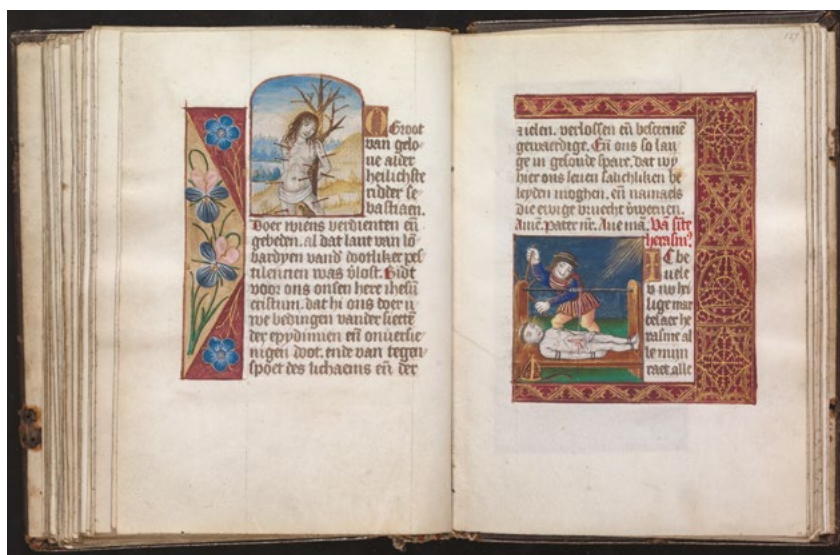 O Groot
van gelo
ue alder
heilichste
ridder se
bastiaen.
Doer wiens verdienten eñ
gebeden. al dat lant van lō
bardyen vand dootliker pes
tilencien was v̄lost. Bidt
voor ons onsen here ihesū
cristum. dat hi ons doer u
we bedingen vander siecten
der epydimien eñ onuersie
nigen doot. ende van tegen
spoet des lichaems eñ der
127
zielen. verlossen eñ bescermē
gewaerdige. Eñ ons so lan
ge in gesonde spare. dat wy
hier ons leuen salichliken be
leyden moghen. eñ namaels
die ewige vruecht v̄weruen.
Amē. pater nr̄. Aue mā. Vā sīte
herasm9
IC be
uele
v uw hei
lige mar
telaer he
rasme al
le mijn
raet. alle